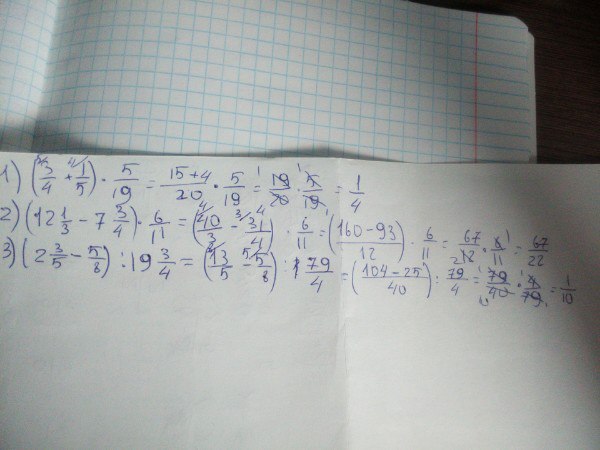 1) (3/4 + 1/5) · 5/19 = (15+4)/20 · 5/19 = 19/20 · 5/19 = 1/4
2) (12 1/3 - 7 3/4) · 6/11 = (40/3 - 31/4) · 6/11 = ((160-93)/12) · 6/11 = 67/12 · 6/11 = 67/22
3) (2 3/5 - 5/8) : 19 3/4 = (13/5 - 5/8) : 79/4 = ((104-25)/40) : 79/4 = 79/40 · 4/79 = 1/10